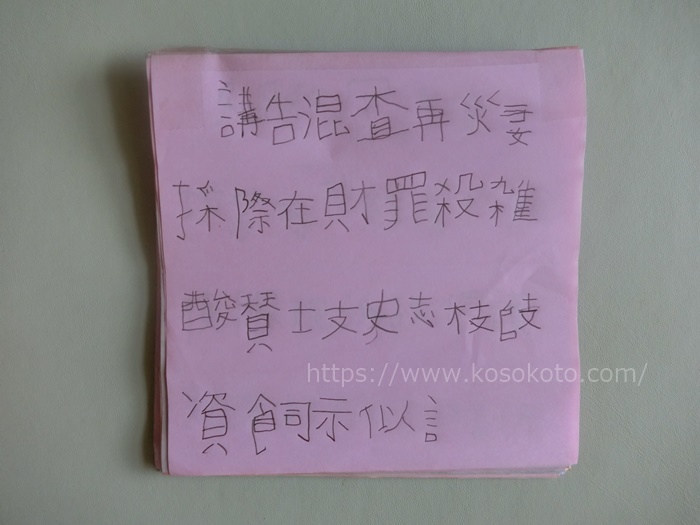 講告混査再災妻
採際在財罪殺雑
酸賛士支史志枝
資飼示似訁
https://www.kosokoto.com/